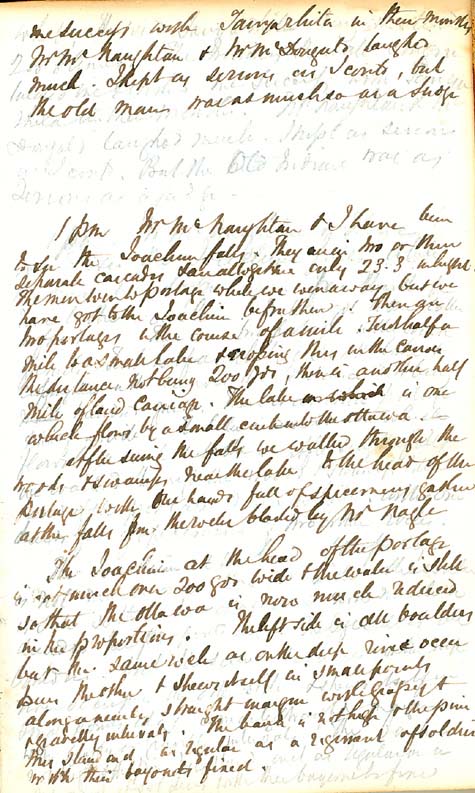 me success with in their monthly
Mr McNaughton & Mr McDougals laughed
much. I kept as serious as I could, but
the old man was as much so as a Judge
1 pm Mr McNaughton & I have been
to see the Joachim falls. They are in two or three
separate cascades & are altogether only 23.3 in height.
The men went to portage while we were away but we
have got to the Joachim before them. There are
two portages in the course of a mile. First half a
mile to a small lake & crossing this in the canoe
the distance not being 200 yds, there is another half
mile of land carriage. The lake is one
which flows by a small creek into the Ottawa
After seeing the falls we walked through the
woods & swamps near the lake to the head of the
portage with our hands full of specimens gathered
at the falls from the rocks blasted by Mr Nagle
The Joachim at the head of the portage
is not much over 200 yds wide & the water is still
so that the Ottawa is now much reduced
in its proportions. The left side is all boulders
but the same rock as on the deep river occurs
on the other & shews itself in small points
along a nearly straight margin with
& gravelly intervals. The bank is not high & the pine
trees stand as regular as a regiment of soldiers
with their bayonets fixed.